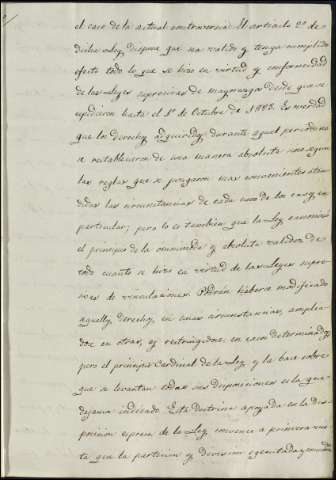 el caso de la actual controversia. El artículo 2º de
dicha Ley, dispone que sea valido y tenga cumplido
efecto todo lo que se hizo en virtud y conformidad
de las Leyes supresivas de mayorazgos desde que se
espidieron hasta el 1º de Octubre de 1823. Es verdad
que los derechos adquiridos durante aquel periodo no
se restablecieron de una manera absoluta sino segun
las reglas que se juzgaron mas convenientes aten
didas las circunstancias de cada uno de los casos en
particular; pero lo es tambien que la Ley sanciona
el principio de la omnimoda y absoluta validez de
todo cuanto se hizo en virtud de las Leyes supre
sivas de vinculaciones. Podrán haberse modificado
aquellos derechos, en unas circunstancias, amplia
dose en otras, y restringidose en casos determinados,
pero el principio cardinal de la Ley y la base sobre
que se levantan todas sus disposiciones es la que
dejamos indicado. Esta doctrina apoyada en la dis
posicion espresa de la Ley convence a primera vis
ta que la particion y division ejecutada